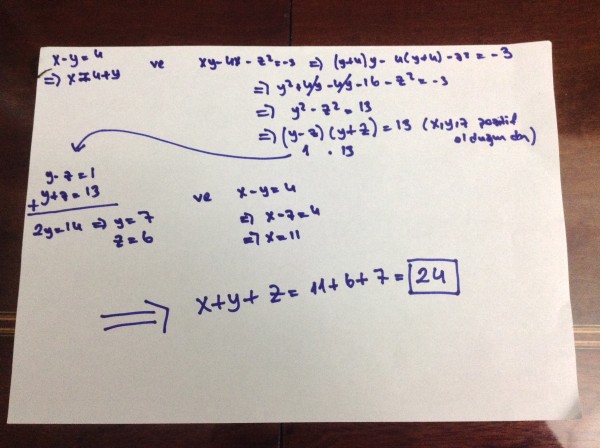 x-y=4 ve xy-4x-z²=-3 ⇒ (y+4)y - 4(y+4) - z² = -3
⇒ x=4+y
⇒ y²+4y-4y-16-z²=-3
⇒ y²-z²=13
⇒ (y-z)(y+z)=13 (x,y,z pozitif
olduğundan)
1 . 13
y-z=1
+ y+z=13
2y=14 ⇒ y=7
z=6
ve x-y=4
⇒ x-7=4
⇒ x=11
⇒ x+y+z=11+6+7=24